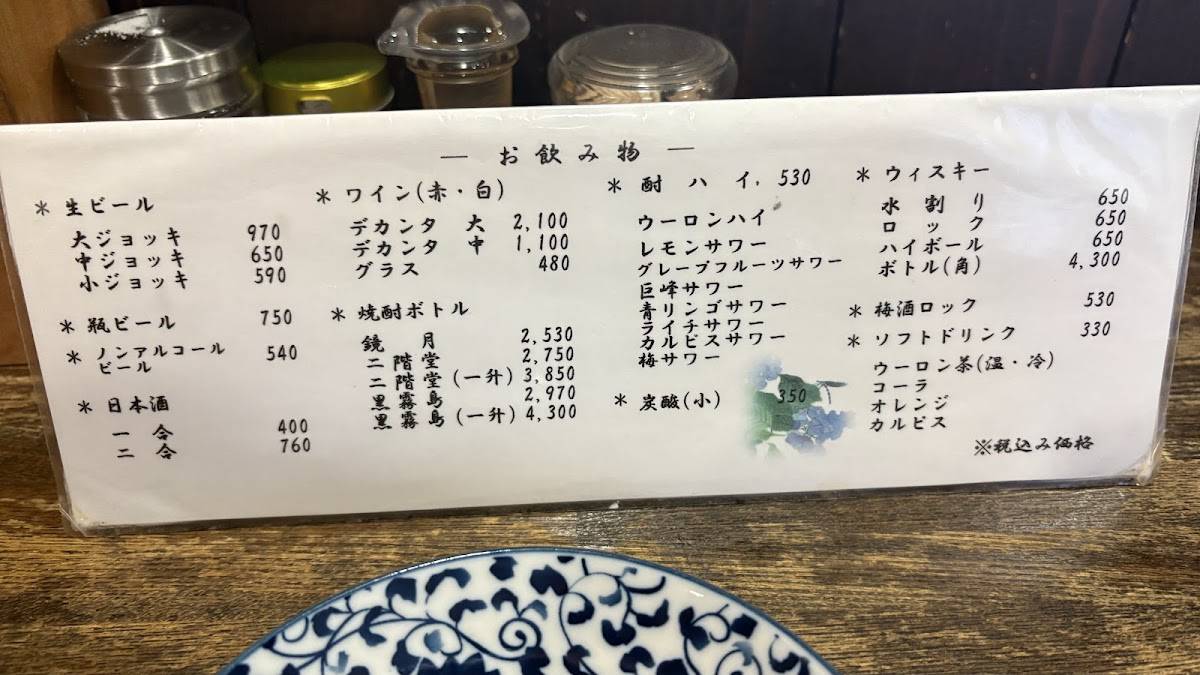 — お飲み物 —
＊ 生ビール
大ジョッキ 970
中ジョッキ 650
小ジョッキ 590
＊ 瓶ビール 750
＊ ノンアルコール
ビール 540
＊ 日本酒
一合 400
二合 760
＊ ワイン(赤・白)
デカンタ 大 2,100
デカンタ 中 1,100
グラス 480
＊ 焼酎ボトル
鏡月 2,530
二階堂 2,750
二階堂(一升) 3,850
黒霧島 2,970
黒霧島(一升) 4,300
＊ 酎ハイ, 530
ウーロンハイ
レモンサワー
グレープフルーツサワー
巨峰サワー
青リンゴサワー
ライチサワー
カルピスサワー
梅サワー
＊ 炭酸(小) 350
＊ ウィスキー
水割り 650
ロック 650
ハイボール 650
ボトル(角) 4,300
＊ 梅酒ロック 530
＊ ソフトドリンク 330
ウーロン茶(温・冷)
コーラ
オレンジ
カルピス
※税込み価格